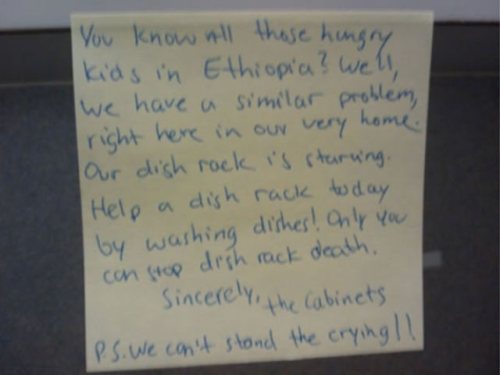 You know all those hungry
kids in Ethiopia? Well,
we have a similar problem,
right here in our very home.
Our dish rack is starving.
Help a dish rack today
by washing dishes! Only you
can stop dish rack death.
Sincerely, the Cabinets
P.S. We can't stand the crying!!